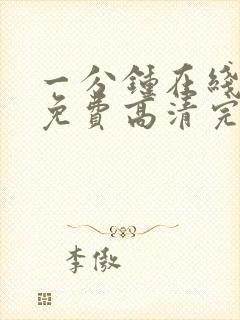 一分鍾在綫
免費高清完
李傲